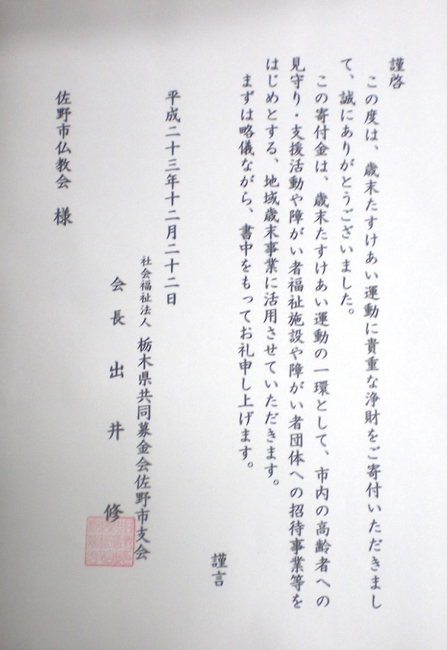 謹啓
この度は、歳末たすけあい運動に貴重な浄財をご寄付いただきまし
て、誠にありがとうございました。
この寄付金は、歳末たすけあい運動の一環として、市内の高齢者への
見守り・支援活動や障がい者福祉施設や障がい者団体への招待事業等を
はじめとする、地域歳末事業に活用させていただきます。
まずは略儀ながら、書中をもってお礼申し上げます。
謹言
平成二十三年十二月二十二日
社会福祉法人 栃木県共同募金会佐野市支会
会長 出井 修
佐野市仏教会 様